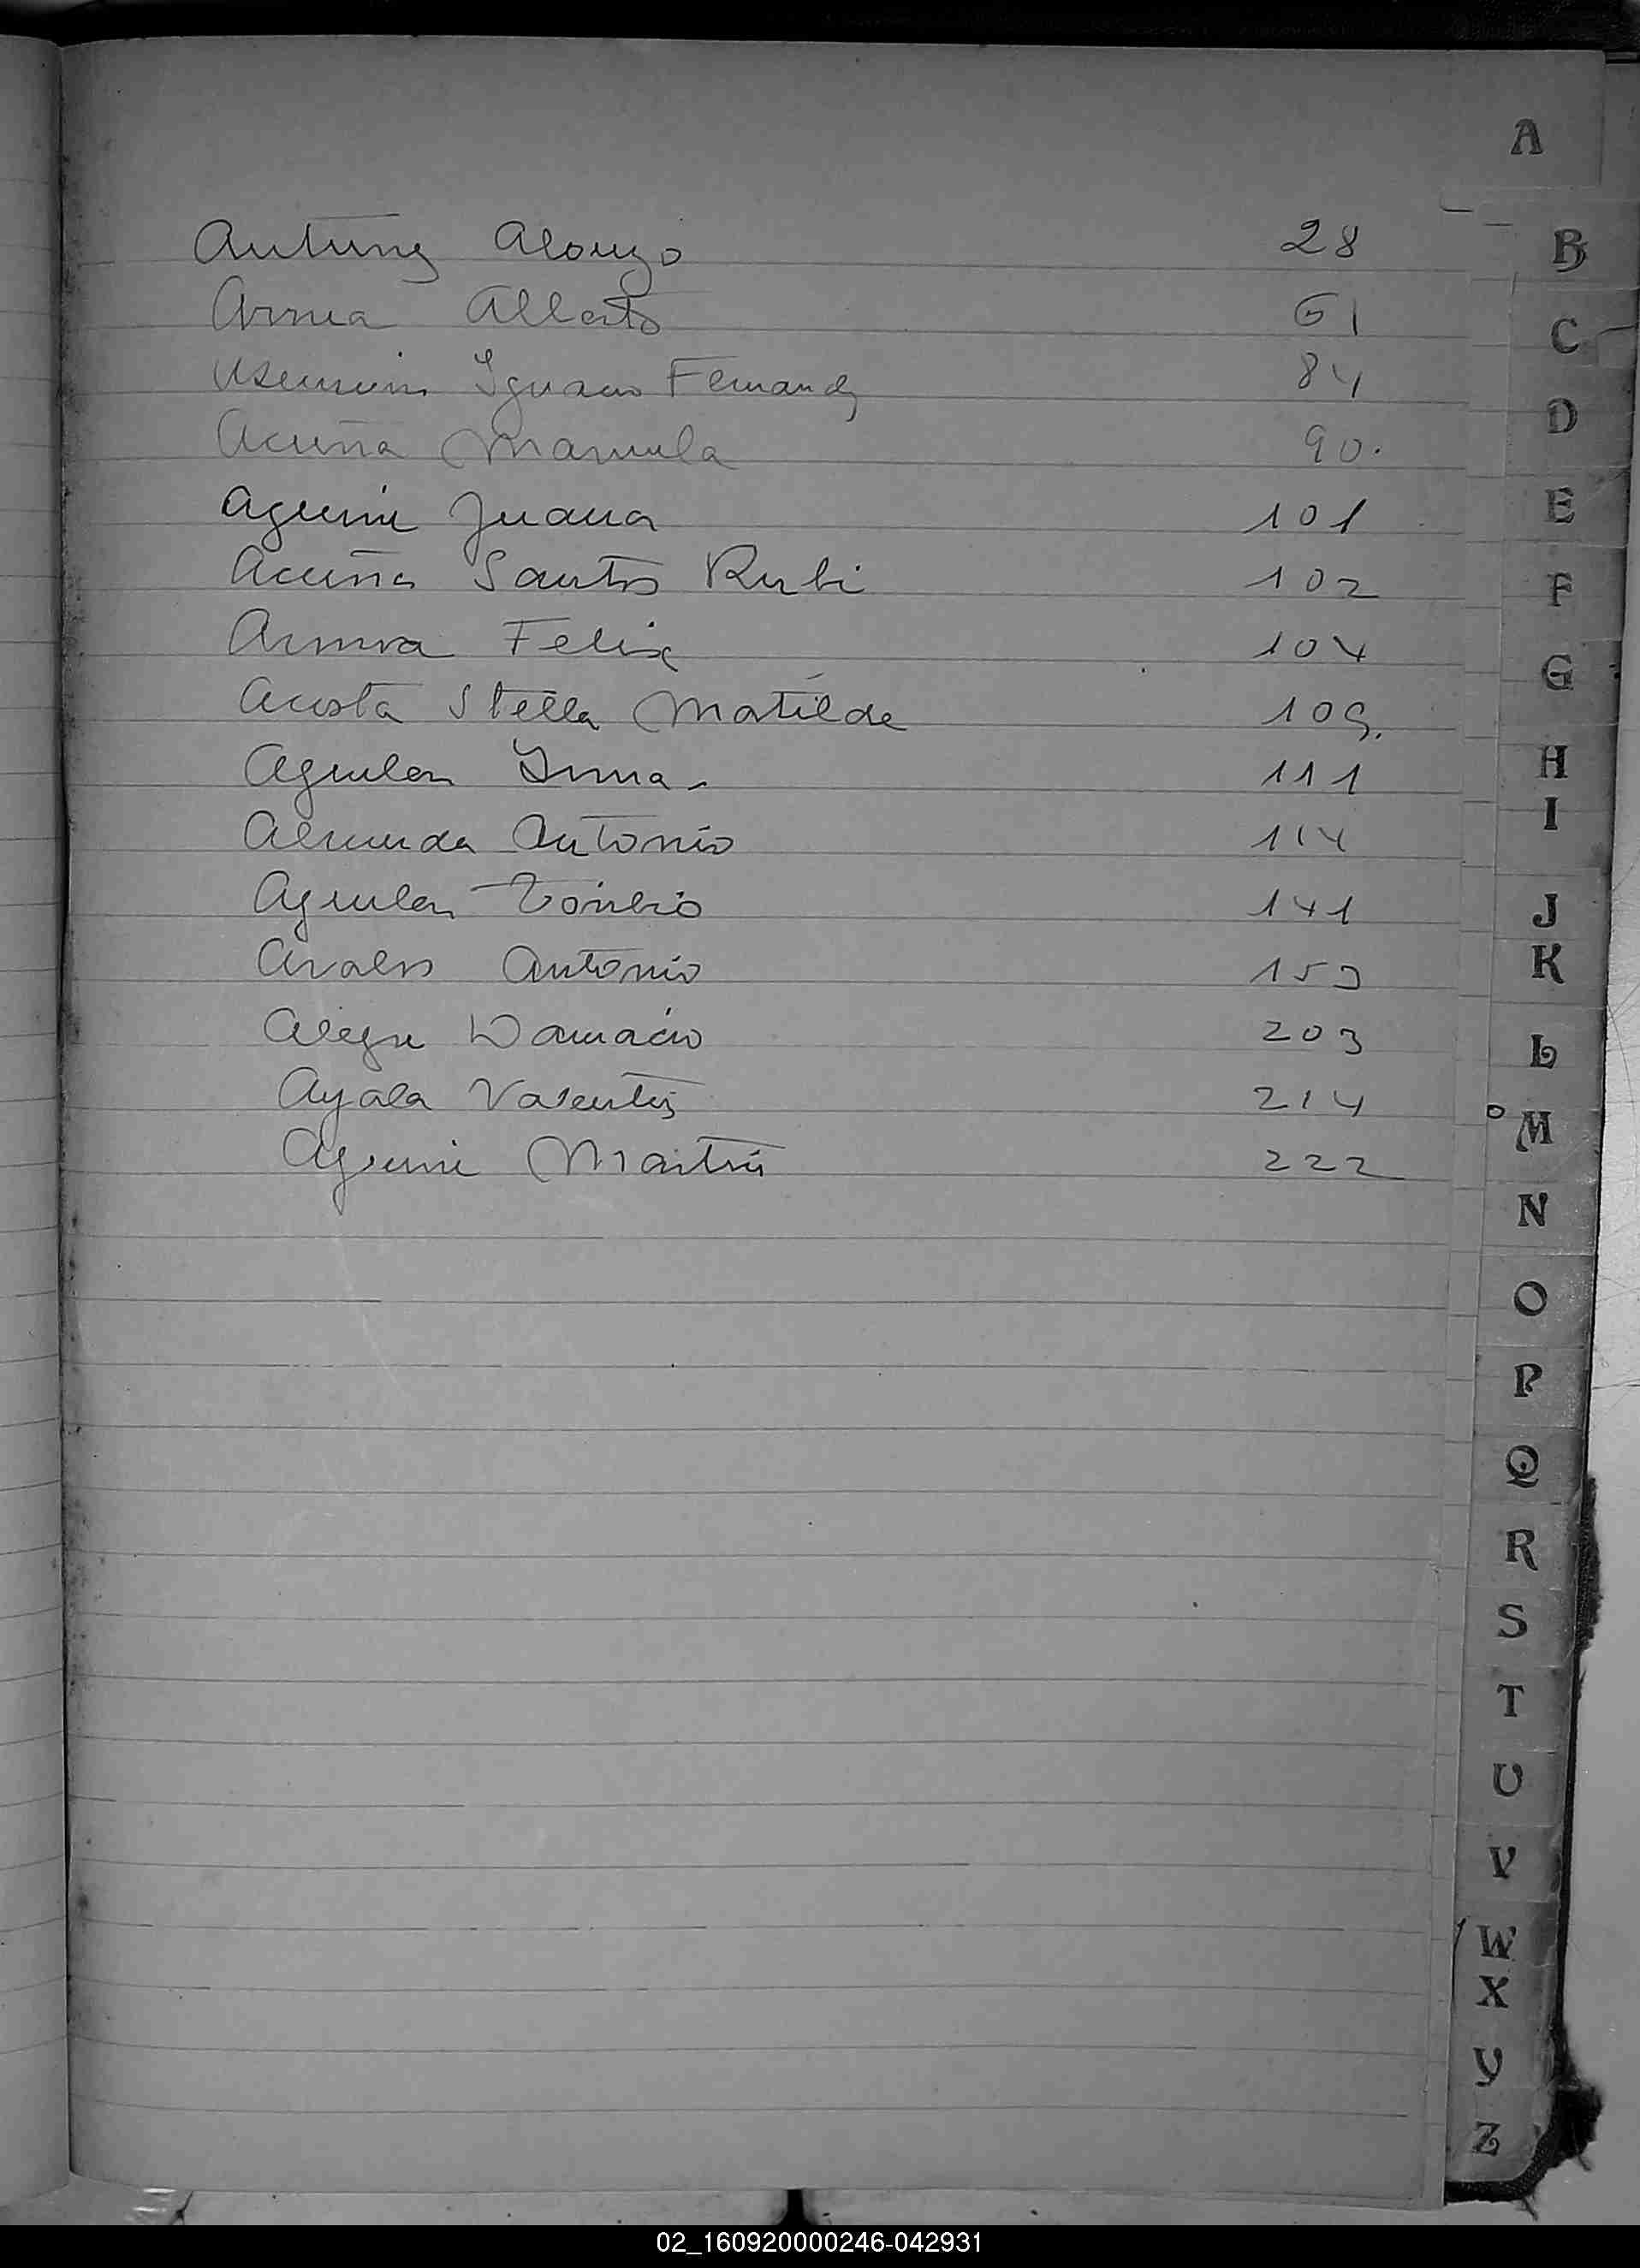 A
Antunez Alonzo 28
B
Alberto 61
C
Ignacio Fernandez 84
D
Acuña Manuela 90.
Aguirre Juana 101
E
Acuña Santos Rubi 102
F
Felix 104
G
Acosta Stella Matilde 109.
Aguilar Irma 111
H
I
Almeida Antonio 114
Aguilar Toribio 141
J
Avalos Antonio 153
K
Alegre Damacio 203
L
Ayala Valentin 214
M
Aguirre Martin 222
N
O
P
Q
R
S
T
U
V
W
X
Y
Z
02_160920000246-042931